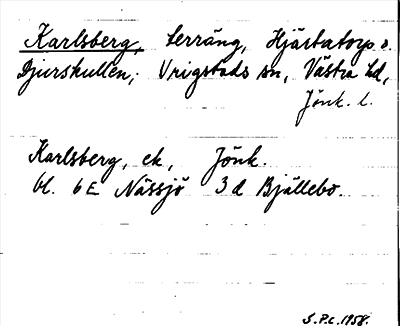 Karlsberg, terräng, Hjärtatorp o.
Djurskullen, Vrigstads sn, Västra hd,
Jönk. l.
Karlsberg, ek, Jönk.
bl. 6E Nässjö 3d Bjällebo.
S.P.L. 1958.